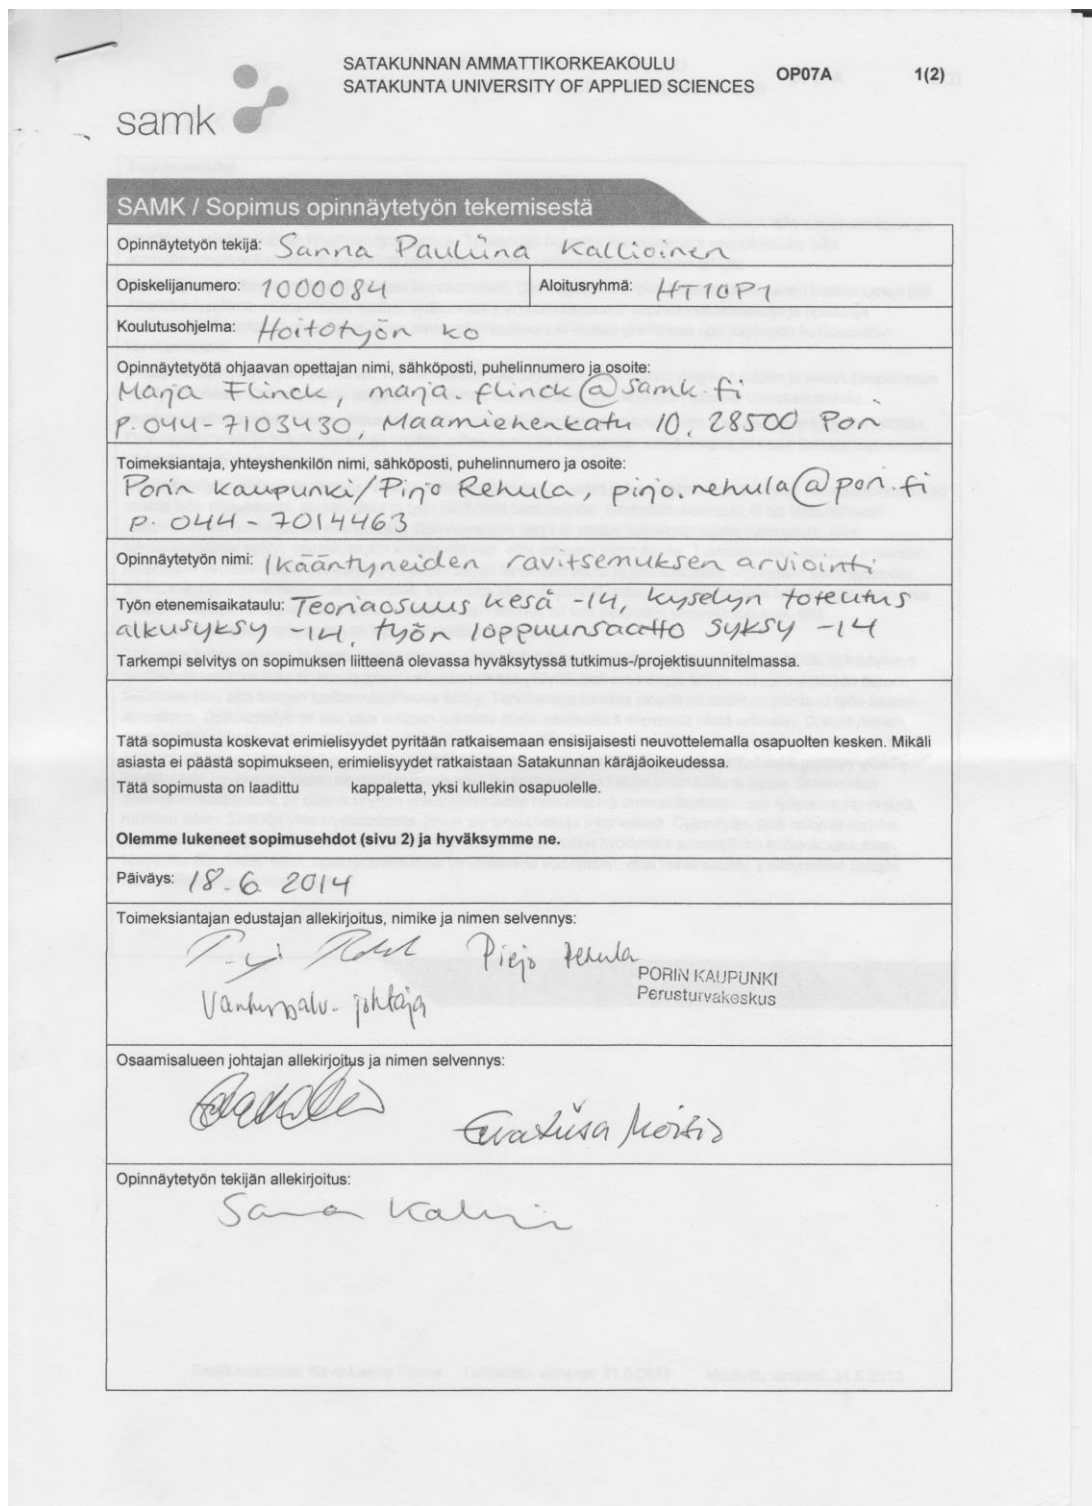 SATAKUNNAN AMMATTIKORKEAKOULU
SATAKUNTA UNIVERSITY OF APPLIED SCIENCES
OP07A
1(2)
samk
SAMK / Sopimus opinnäytetyön tekemisestä
Opinnäytetyön tekijä: Sanna Pauliina Kallioinen
Opiskelijanumero: 1000084
Aloitusryhmä: HT10P1
Koulutusohjelma: Hoitotyön ko
Opinnäytetyötä ohjaavan opettajan nimi, sähköposti, puhelinnumero ja osoite:
Marja Flinck, marja.flinck@samk.fi
p. 044-7103430, Maamiehenkatu 10, 28500 Pori
Toimeksiantaja, yhteyshenkilön nimi, sähköposti, puhelinnumero ja osoite:
Porin kaupunki/Pirjo Rehula, pirjo.rehula@pori.fi
p. 044-7014463
Opinnäytetyön nimi: Ikääntyneiden ravitsemuksen arviointi
Työn etenemisaikataulu: Teoriaosuus kesä -14, kyselyn toteutus
alkusyksy -14, työn loppuunsaatto syksy -14
Tarkempi selvitys on sopimuksen liitteenä olevassa hyväksytyssä tutkimus-/projektisuunnitelmassa.
Tätä sopimusta koskevat erimielisyydet pyritään ratkaisemaan ensisijaisesti neuvottelemalla osapuolten kesken. Mikäli
asiasta ei päästä sopimukseen, erimielisyydet ratkaistaan Satakunnan käräjäoikeudessa.
Tätä sopimusta on laadittu kappaletta, yksi kullekin osapuolelle.
Olemme lukeneet sopimusehdot (sivu 2) ja hyväksymme ne.
Päiväys: 18.6.2014
Toimeksiantajan edustajan allekirjoitus, nimike ja nimen selvennys:
Pirjo Rehula
PORIN KAUPUNKI
Perusturvakeskus
Vanhuspalv. johtaja
Osaamisalueen johtajan allekirjoitus ja nimen selvennys:
Eevaliisa Moisio
Opinnäytetyön tekijän allekirjoitus: